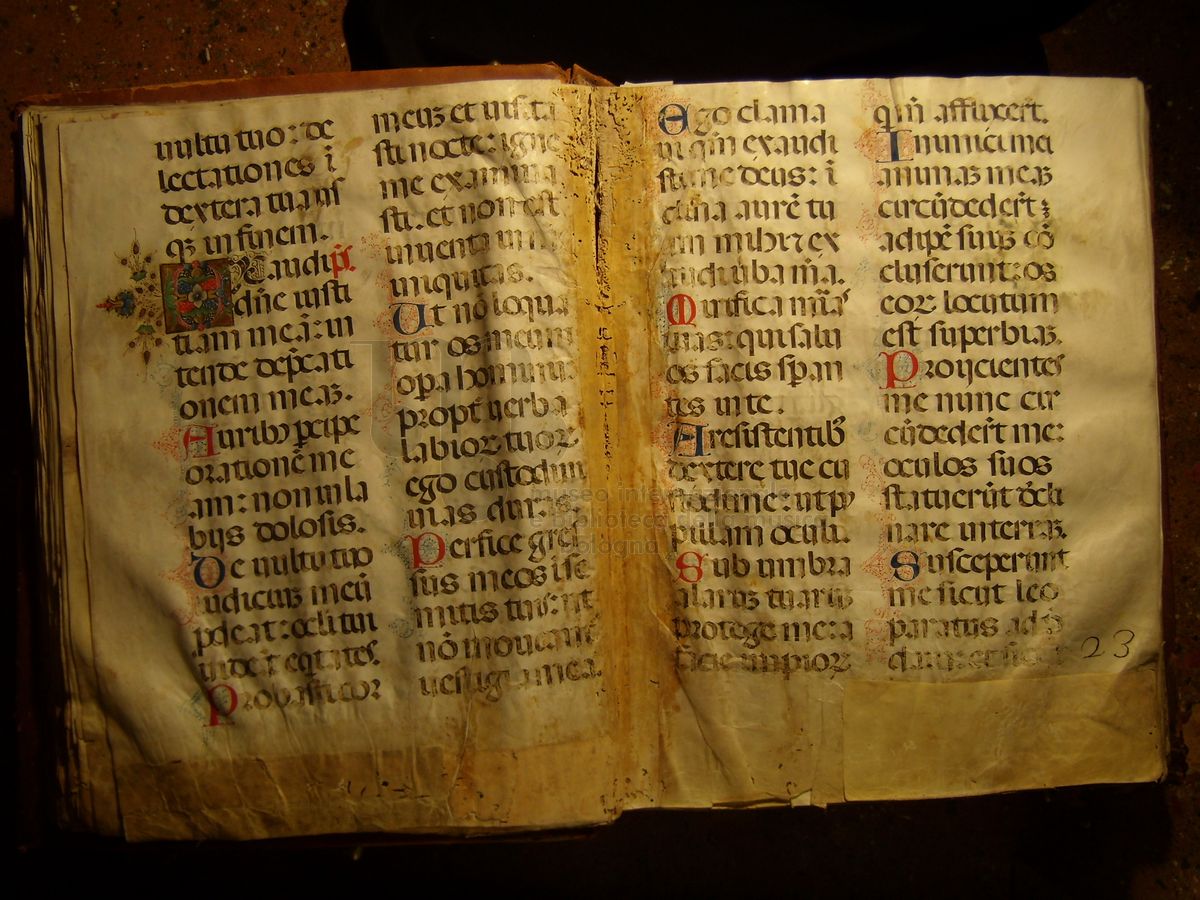 uultu tuo: de
lectationes ĩ
dextera tua usˉ
qȝ in finem.
Exaudi ps̃.
dñe iusti
tiam meã: in
tende dep̃cati
onem meaȝ.
Auribȝ ꝑcipe
orationẽ me
am: non in la
bijs dolosis.
De uultu tuo
iudiciuȝ meũ
ꝓdeat: oc̃li tui
uideãt eq̃tates.
Probasti cor
meuȝ et uisita
sti nocte: igne
me examina
sti. et non est
inuenta in mẽ
iniquitas.
Ut nõ loqua
tur os meum
opa hominũ
propt̃ uerba
labioꝝ tuoꝝ
ego custodiui
uias duras.
Perfice gres
sus meos ĩ se
mitis tuis: ut
nõ moueant̃
uestigia mea.
Ego clama
ui qm̃ exaudi
sti me deus: ĩ
clina aurẽ tu
am mihi ⁊ ex
audi uba m̃a.
Mirifica mĩasˉ
tuas: qui salu
os facis sꝑan
tes in te.
A resistentibȝ
dextere tue cu
stodi me: ut pu
pillam oculi.
Sub umbra
alaruȝ tuaruȝ
protege me: a
facie impioꝝ
qui me afflixert̃.
Inimici mei
animaȝ meaȝ
circũdedert̃:
adipẽ suuȝ cõ
cluserunt: os
eoꝝ locutum
est superbiaȝ.
Proijcientes
me nunc cir
cũdedert̃ me:
oculos suos
statuerũt decli
nare in terraȝ.
Susceperunt
me sicut leo
paratus ad p̃
dam: et sicut
23
museo internazionale
e biblioteca della musica
Bologna